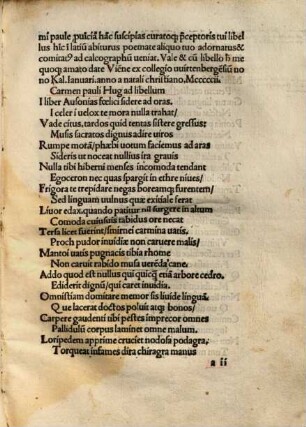 mi paule pulciā hāc suscipias curatoq; p̄ceptoris tui libel
lus hic Latiū abiturus poemate aliquo tuo adornatus &
comitaꝰ ad calcographū ueniat. Vale & cū libello h̄ me
quoq; amato date Viēne ex collegio wirtenbergēsiū no
no Kal. Ianuari. anno a natali christiano. Mccccii.
Carmen pauli Hug ad libellum
I liber Ausonias fœlici sidere ad oras.
I celer i uelox te mora nulla trahat/
Vade citus, tardos quid tentas sistere gressus:
Musis sacratos dignus adire uiros
Rumpe motā/phœbi uotum faciemus ad aras
Sideris ut noceat nullius ira grauis
Nulla tibi hiberni menses incomoda tendant
Egoceron nec quas spargit in ethre niues/
Frigora te trepidare negas boreamq; furentem/
Sed linguam uulnus quæ exitiale ferat
Liuor edax. quando patitur nil surgere in altum
Comoda cuiusuis rabidus ore necat
Tersa licet fuerint/smirnei carmina uatis.
Proch pudor inuidiæ non caruere malis/
Mantoi uatis pugnacis tibia rhome
Non caruit rabido musa uerēda cane.
Addo quod est nullus qui quicq̄ etiā arbore cedro.
Ediderit dignū/qui caret inuidia.
Omnistiam domitare memor sis liuide linguā.
Que lacerat doctos poluit atq; bonos/
Carpere gaudenti tibi pestes imprecor omnes
Pallidulū corpus laminet omne malum.
Loripedem apprime cruciet nodosa podagra.
Torqueat infames dira chiragra manus
a ii